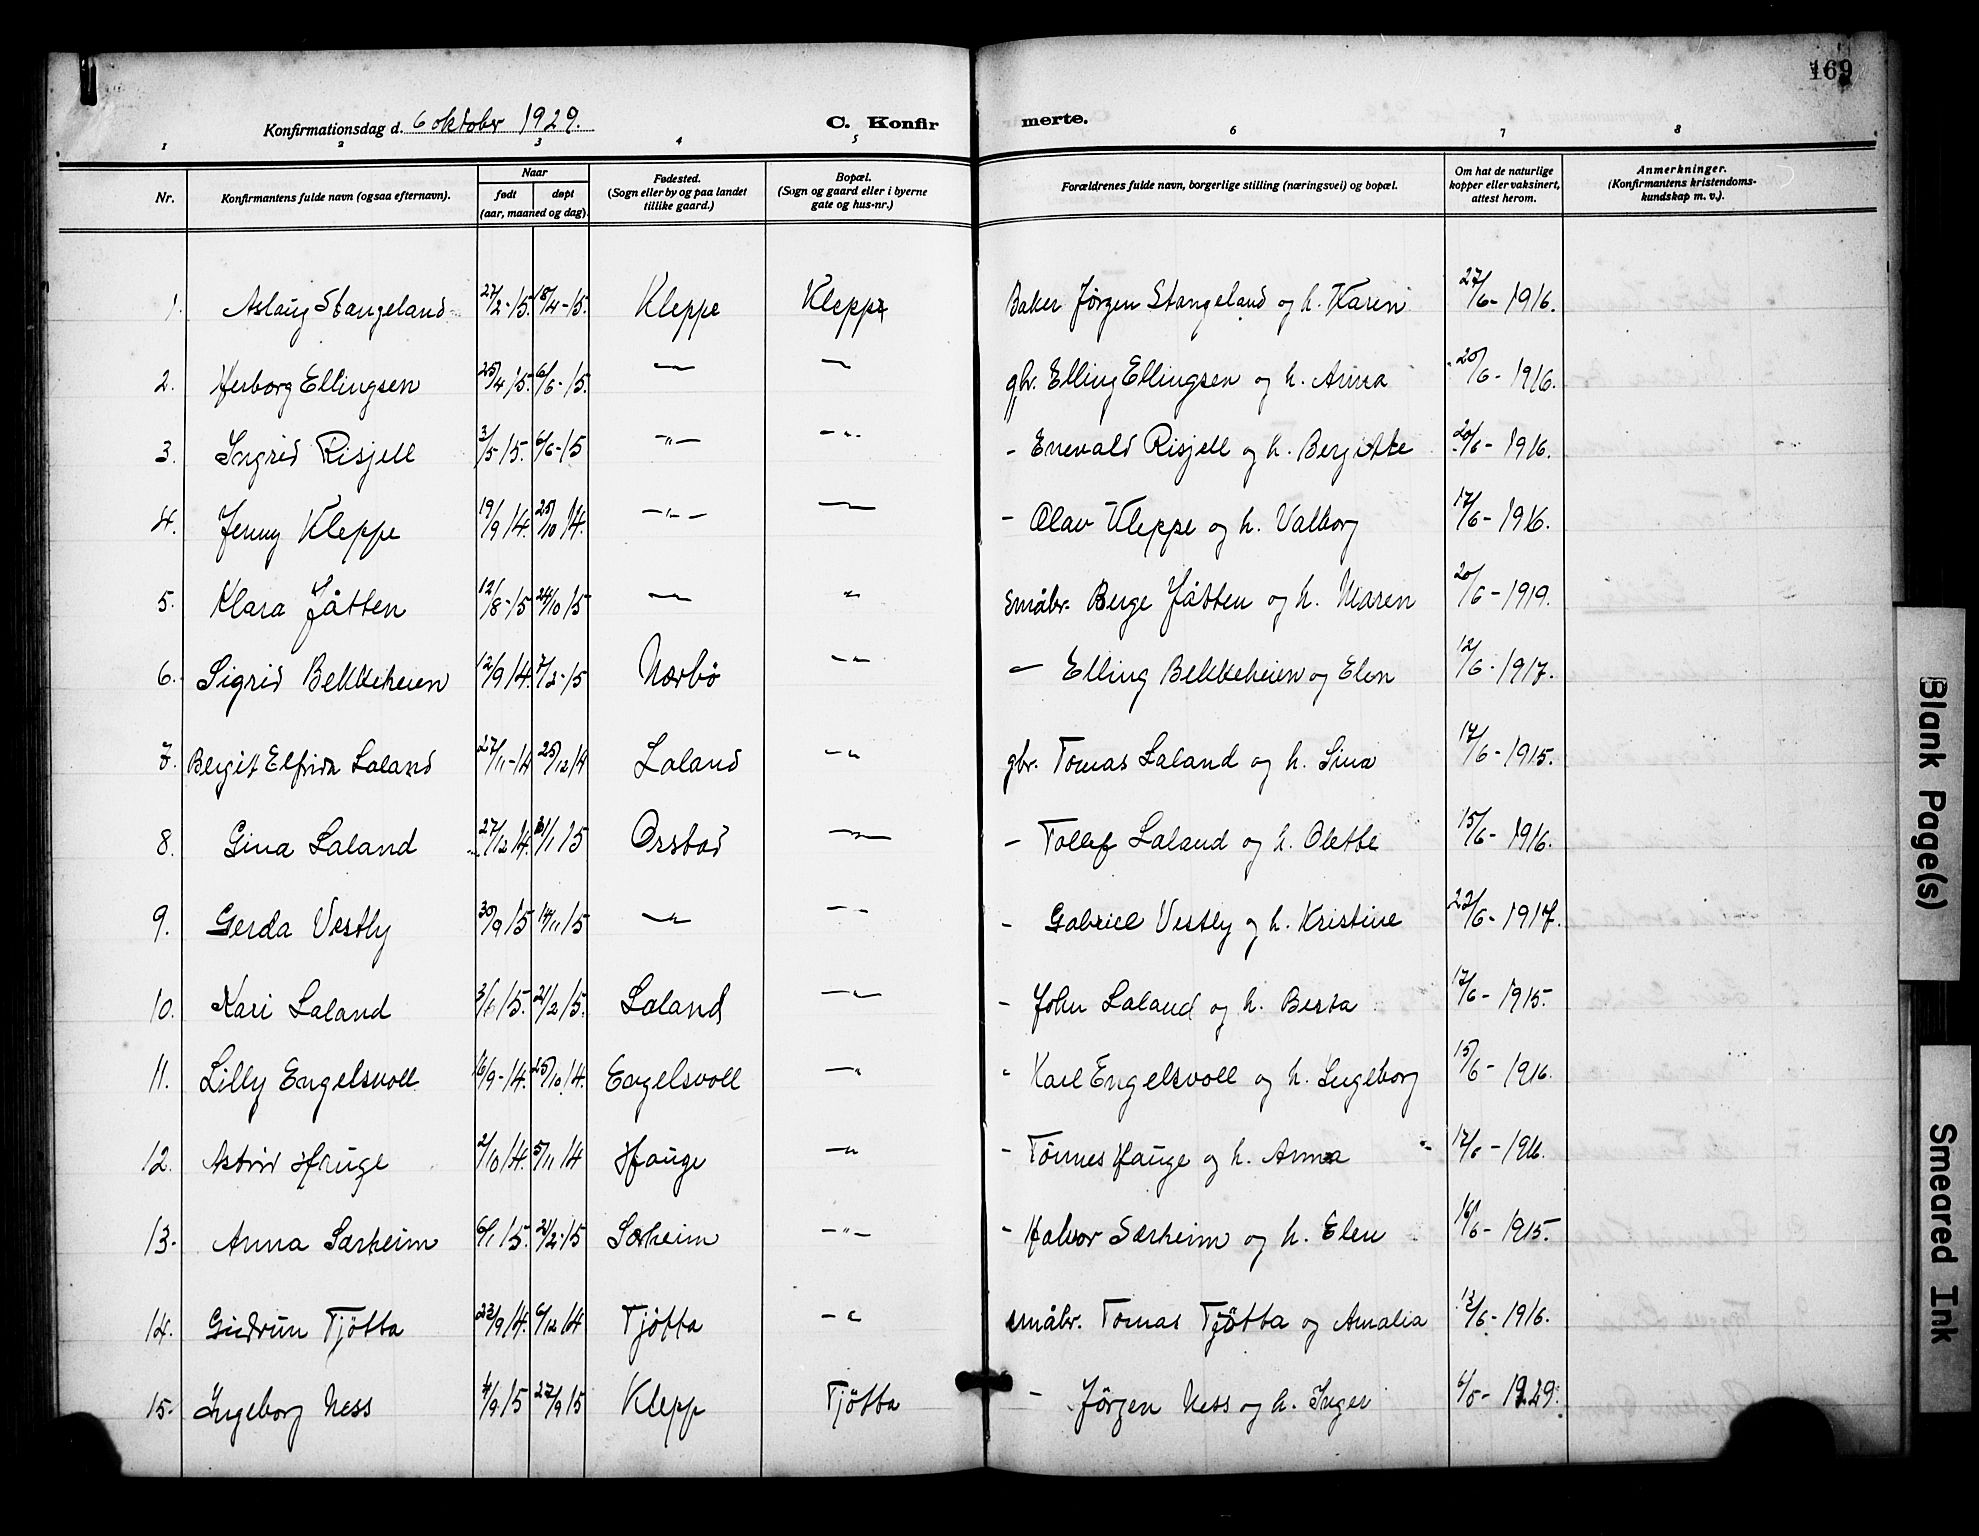 169
Konfirmationsdag d. 6 oktober 1929. C. Konfir merte.
1 2 3 4 5 6 7 8
Nr. Konfirmantens fulde navn (ogsaa efternavn). Naar født døpt (aar, maaned og dag). Fødested. (Sogn eller by og paa landet tillike gaard.) Bopæl. (Sogn og gaard eller i byerne gate og hus-nr.) Forældrenes fulde navn, borgerlige stilling (næringsvei) og bopæl. Om hat de naturlige kopper eller vaksinert, attest herom. Anmerkninger. (Konfirmantens kristendoms- kundskap m. v.).
1. Aslaug Stangeland 27/2-15. 18/4-15. Kleppe Kleppe Baker Jørgen Stangeland og h. Karen 27/6-1916.
2. Herborg Ellingsen 25/4 15. 6/6-15. -"- -"- gbr. Elling Ellingsen og h. Anna 20/6-1916.
3. Ingrid Risjell 3/5 15. 6/6-15 -"- -"- - Enevald Risjell og h. Bergitte 20/6-1916.
4. Jenny Kleppe 19/9 14. 25/10 14. -"- -"- - Olav Kleppe og h. Valborg 17/6-1916.
5. Klara Jåtten 12/8-15 24/10 15 -"- " småbr. Berge Jåtten og h. Maren 20/6-1919.
6. Sigrid Bekkeheien 12/9 14. 7/2-15 Nærbø -"- - Elling Bekkeheien og Elen 12/6-1917.
7. Bergit Elfrida Laland 27/11-14 25/12 14 Laland -"- gbr. Tomas Laland og h. Sina 17/6-1915.
8. Gina Laland 27/12 14. 31/1 15 Orstad -"- - Tollef Laland og h. Olette 15/6-1916.
9. Gerda Vestly 30/9 15 14/11 15 -"- -"- - Gabriel Vestly og h. Kristine 22/6-1917.
10. Kari Laland 3/1 15. 21/2 15. Laland -"- - John Laland og h. Berta 17/6-1915.
11. Lilly Engelsvoll 16/9-14. 25/10 14. Engelsvoll -"- " Karl Engelsvoll og h. Ingeborg 15/6-1916.
12. Astrid Hauge 2/10 14. 5/11 14 Hauge -"- - Tønnes Hauge og h. Anna 17/6-1916.
13. Anna Særheim 6/1 15. 21/2-15 Særheim -"- - Halvor Særheim og h. Elen 16/6-1915.
14. Gudrun Tjøtta 23/9 14. 6/12 14 Tjøtta -"- småbr. Tomas Tjøtta og Amalia 13/6-1916.
15. Ingeborg Ness 4/9 15 27/9 15 Klepp Tjøtta - Jørgen Ness og h. Inger 6/5-1929.
Blank Page(s)
Smeared Ink